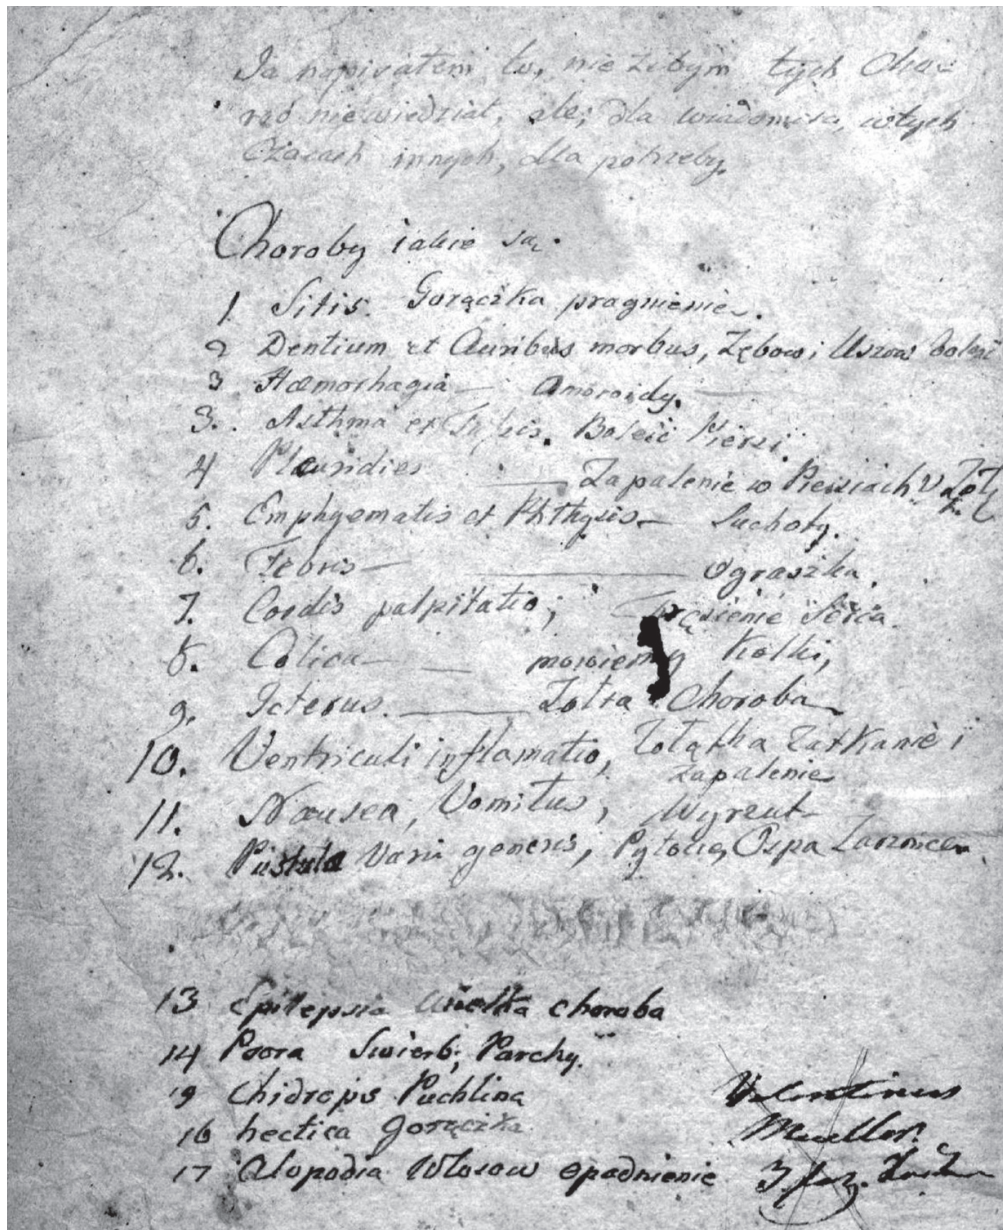 Ja napisałem to, nie żebym tych Cho-
rób nie wiedział, ale; dla wiadomosci, w tych
Czasach innych, dla potrzeby.
Choroby iakie są.
1 Sitis. Gorączka pragnienie.
2 Dentium et Auribus morbus, Zębow i Uszow bolesć
3 Hæmorhagia — Amoroidy. —
3. Asthma et Bolesć Piersi.
4 Pleuridies — Zapalenie w Piersiach
5. Emphyematis et Phthysis — Suchoty.
6. Febris — Ograszka.
7. Cordis palpitatio; Trzęsienie Serca.
8. Colica — mowiemy Kolki,
9. Icterus. — Zołta Choroba
10. Ventriculi inflamatio, Żołątka Zatkanie i
zapalenie
11. Nausea, Vomitus, Wyrzut
12. Pustula Varii generis, Ospa
13 Epilepsia wielka choroba
14 Psora Swierb; Parchy.
19 Chidrops Puchlina
16 hectica Gorączka
17 Alopodia Włosow opadnienie
Valentinus
Mueller.